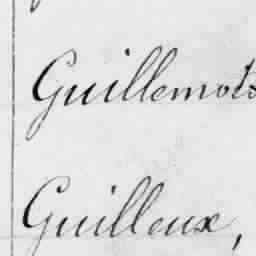 Guillemots
Guilleux,